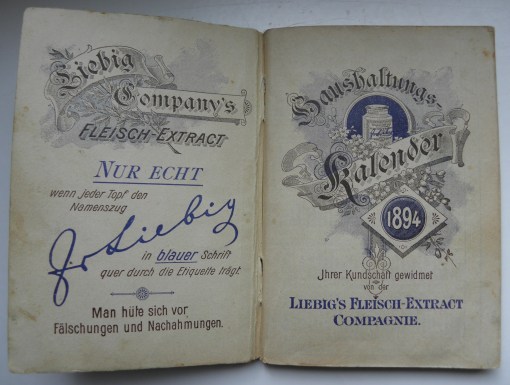 Liebig
Company's
FLEISCH-EXTRACT
NUR ECHT
wenn jeder Topf den
Namenszug
Jv Liebig
in blauer Schrift
quer durch die Etiquette trägt.
Man hüte sich vor
Fälschungen und Nachahmungen.
Haushaltungs-
Kalender
1894
Jhrer Kundschaft gewidmet
von der
LIEBIG'S FLEISCH-EXTRACT
COMPAGNIE.